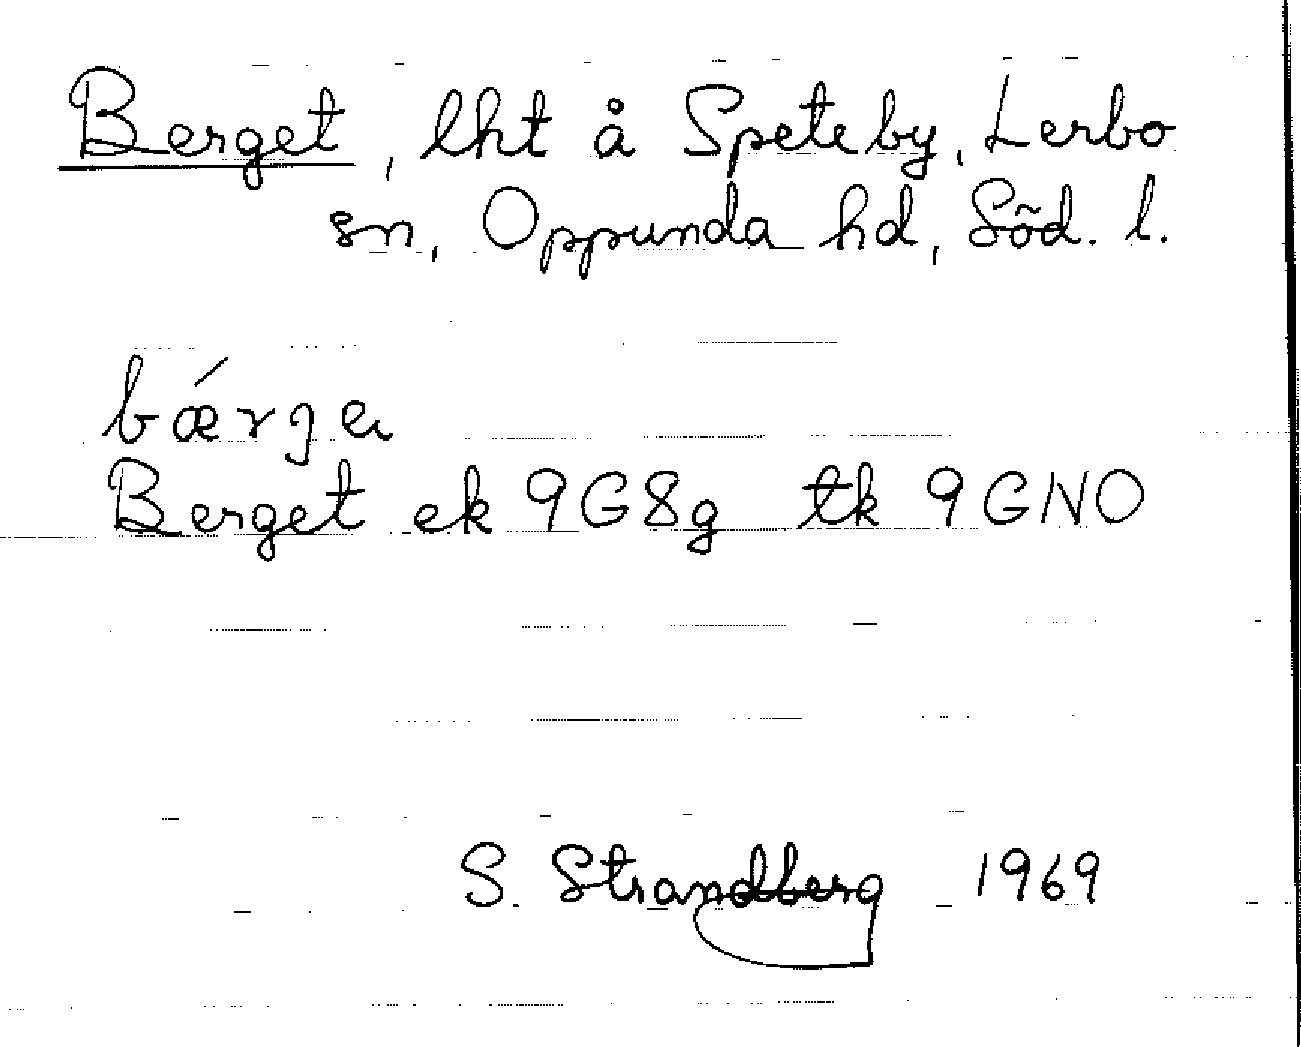 Berget, lht å Speteby, Lerbo
sn, Oppunda hd, Söd. l.
bǽrjen
Berget ek 9G8g tk 9GNO
S. Strandberg 1969